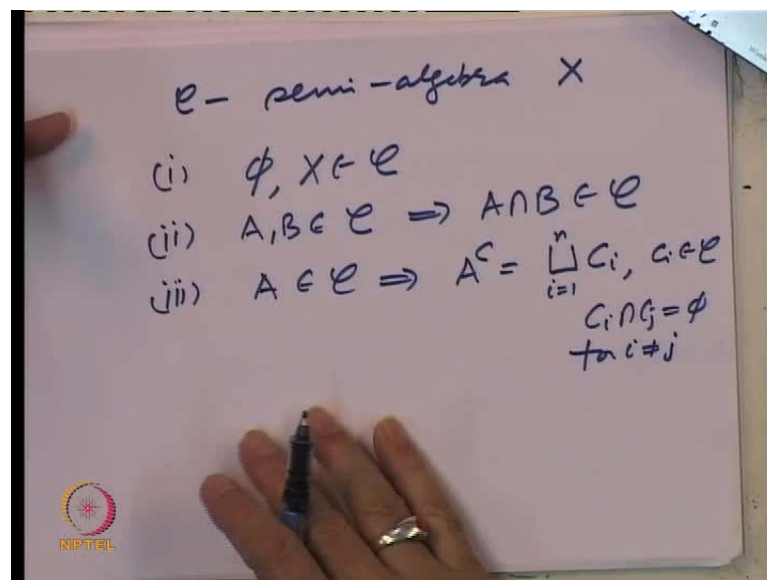 𝒞 – semi-algebra X
(i) ϕ, X ∈ 𝒞
(ii) A, B ∈ 𝒞 ⇒ A ∩ B ∈ 𝒞
(iii) A ∈ 𝒞 ⇒ Aᶜ = ⊔ᵢ₌₁ⁿ Cᵢ, Cᵢ ∈ 𝒞
Cᵢ ∩ Cⱼ = ϕ
for i ≠ j
NPTEL